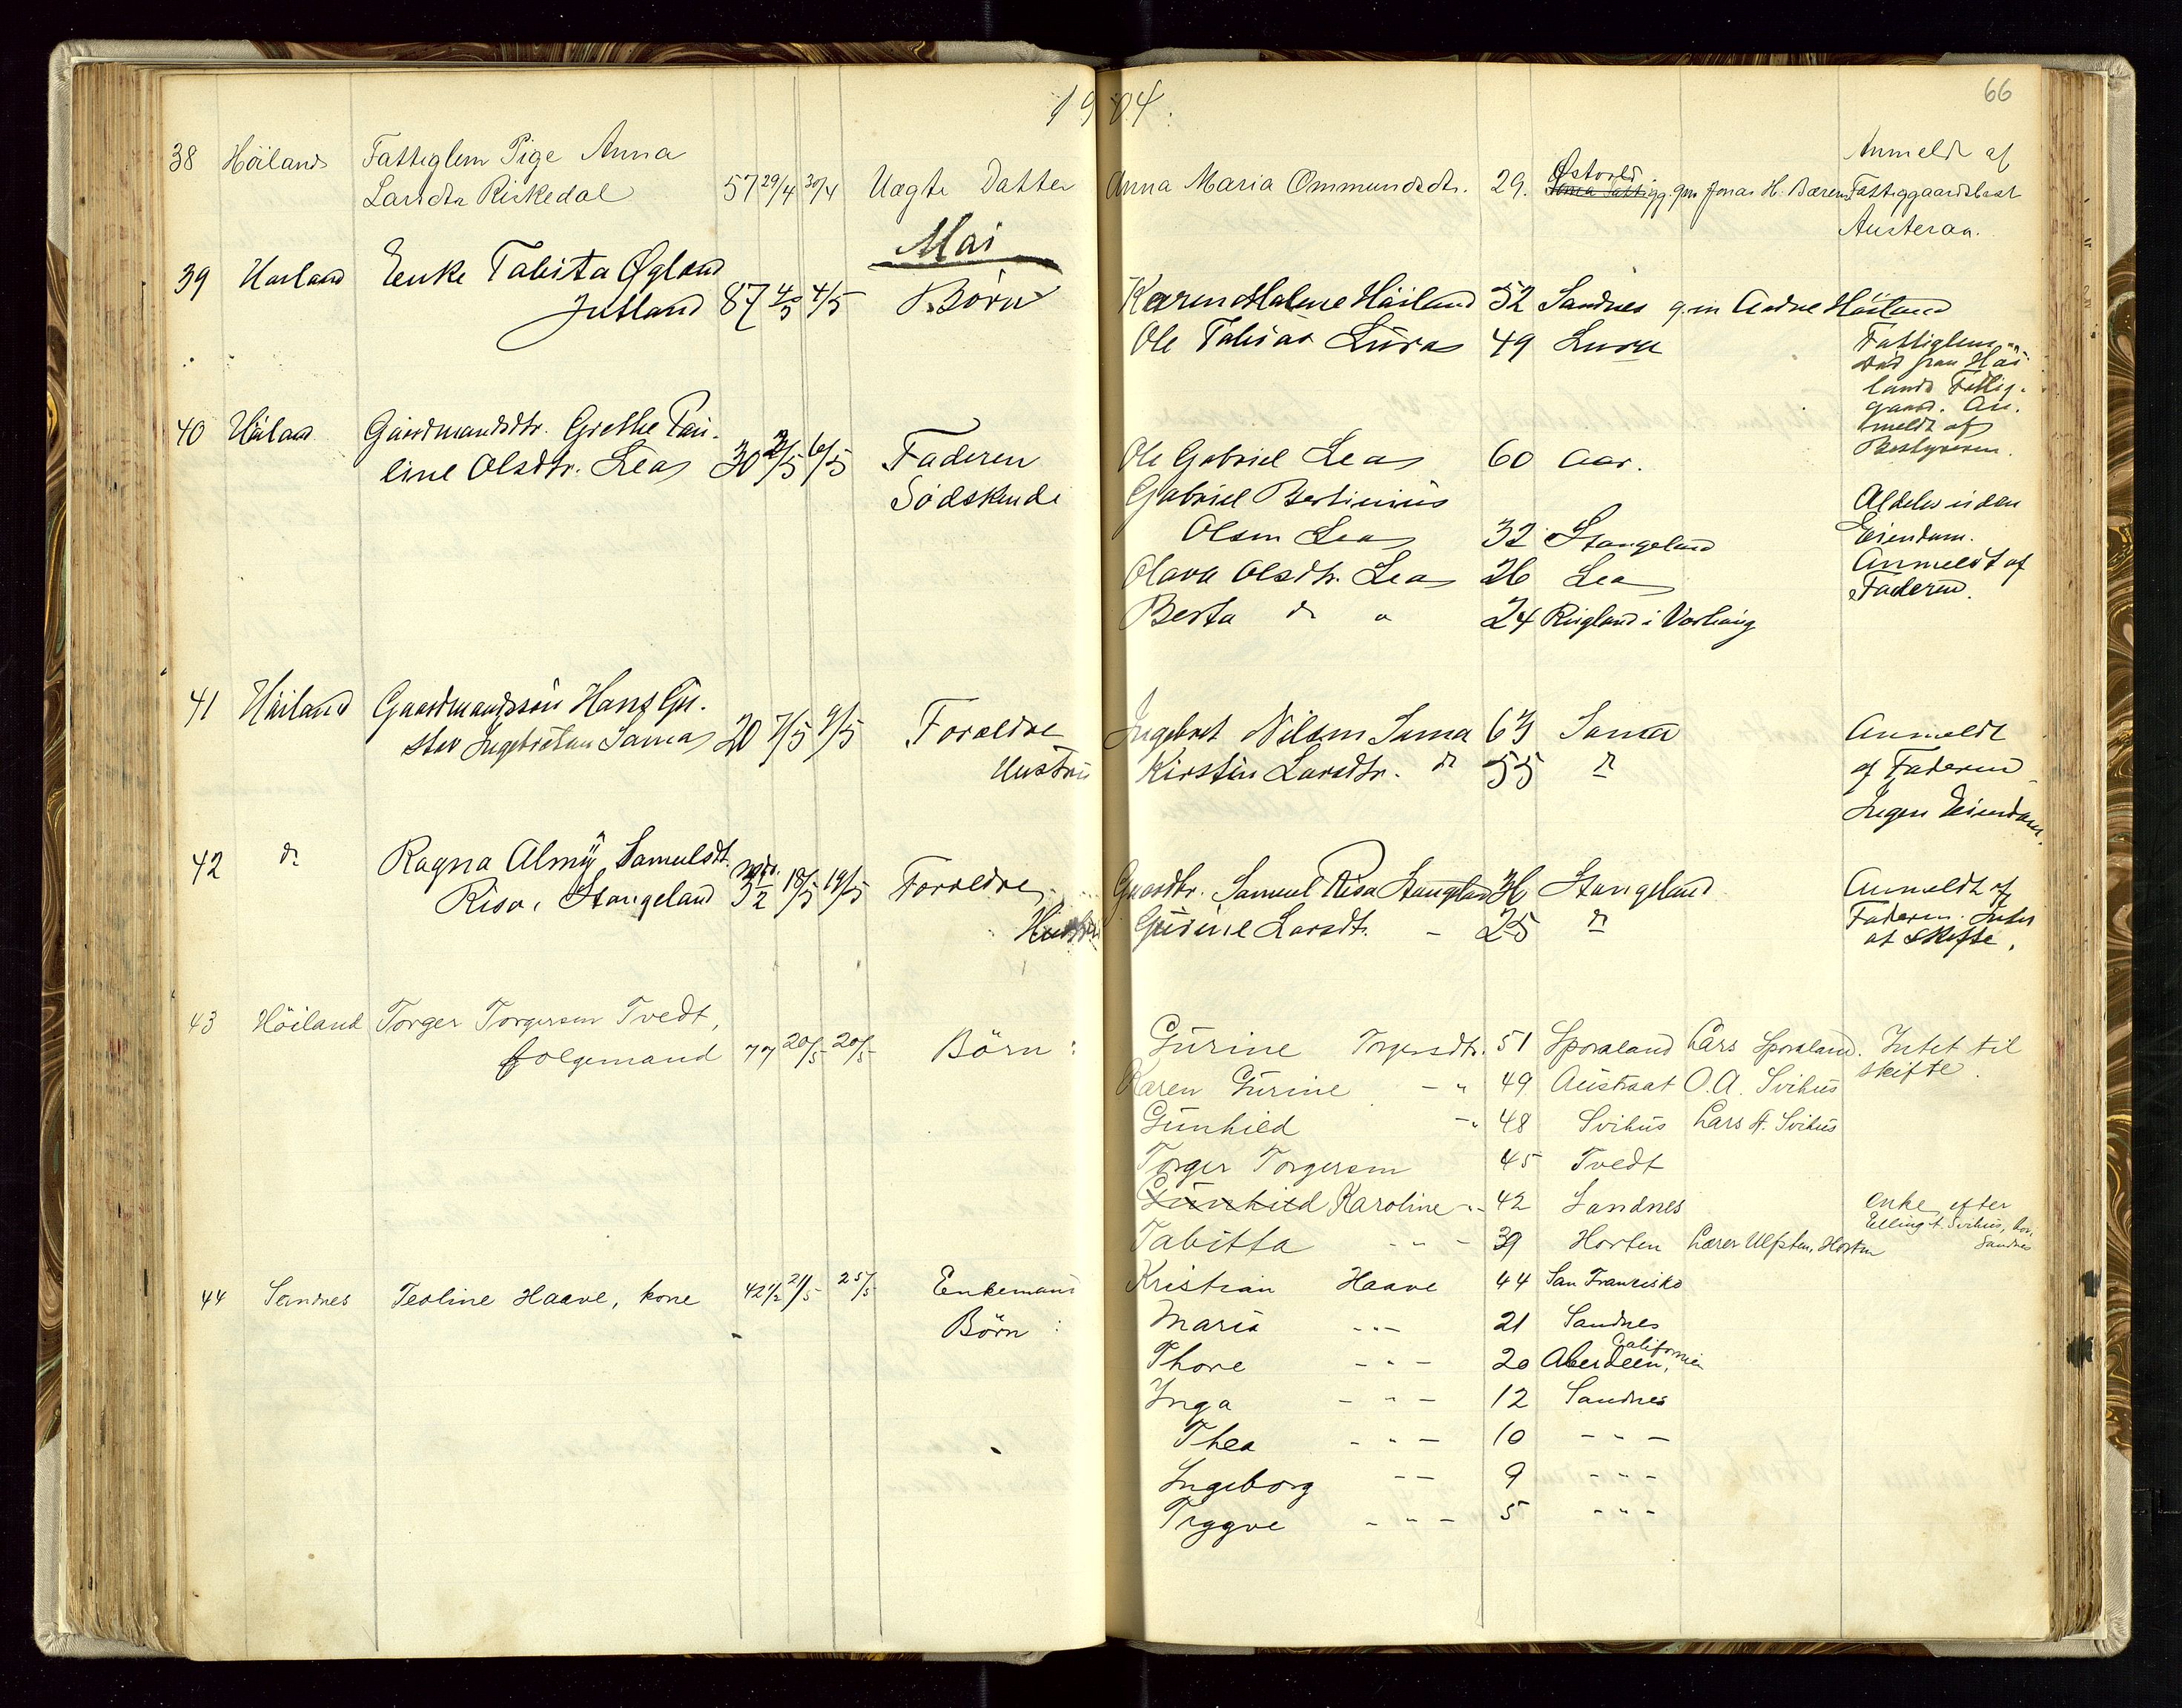 1904.
66
38 Höiland Fattiglem Pige Anna
Larsdtr Riskedal 57 29/4 30/4 Uægte Datter Anna Maria Ommundsdtr. 29. Østvold. gm Jonas H. Bærem
Anmeldt af
Fattiggaardsbest
Austeraa.
Mai
39 Høiland Enke Tabita Øgland
Jutland 87 4/5 4/5 Børn Karen Malene Höiland 52 Sandnes g.m Aadne Höiland
Ole Tobias Lura 49 Lura
Fattiglem
død paa Høi-
lands Fattig-
gaard. An-
meldt af
Bestyreren.
40 Høiland Gaardmandsdtr. Grethe Pau-
line Olsdtr. Lea 30 2/5 6/5 Faderen Ole Gabriel Lea 60 Aar.
Södskende Gabriel Bertinius
Olsen Lea 32 Stangeland
Olava Olsdtr. Lea 26 Lea
Berta dr " 24 Ringland i Varhaug
Aldeles uden
Eiendom.
Anmeldt af
Faderen.
41 Høiland Gaardmandssøn Hans Gu-
stav Ingebretsen Soma 20 7/5 9/5 Forældre Ingebret Nilsen Soma 63 Soma
Hustru Kirstin Larsdtr. do 55 do
Anmeldt
af Faderen
Ingen Eiendom.
42 do Ragna Almy Samuelsdt.
Risa, Stangeland 3 1/2 18/5 19/5 Forældre Gaardbr. Samuel Risa Stangeland 36 Stangeland
Hustru Gurine Larsdt. - 25 do
Anmeldt af
Faderen. Intet
at skifte.
43 Höiland Torger Torgersen Tvedt,
folgemand 77 20/5 20/5 Börn: Gurine Torgersdtr. 51 Sporaland Lars Sporaland. Intet til
skifte.
Karen Gurine - " 49 Austraat O.A. Svihus
Gunhild - " 48 Svihus Lars A. Svihus
Torger Torgersen 45 Tvedt
Gunhild Karoline - " - 42 Sandnes enke efter
Elling A. Svihus,
Sandnes
Tabitta - " - 39 Horten Lærer Ulfsten, Horten
44 Sandnes Teoline Haave, kone 42 1/2 21/5 25/5 Enkemand Kristian Haave 44 San Franzisko
Börn: Maria - " - 21 Sandnes
Thore - " - 20 Aberdeen, Californien
Inga - " - 12 Sandnes
Thea - " - 10 - " -
Ingeborg - - 9 - " -
Tryggve - " - 5 - " -